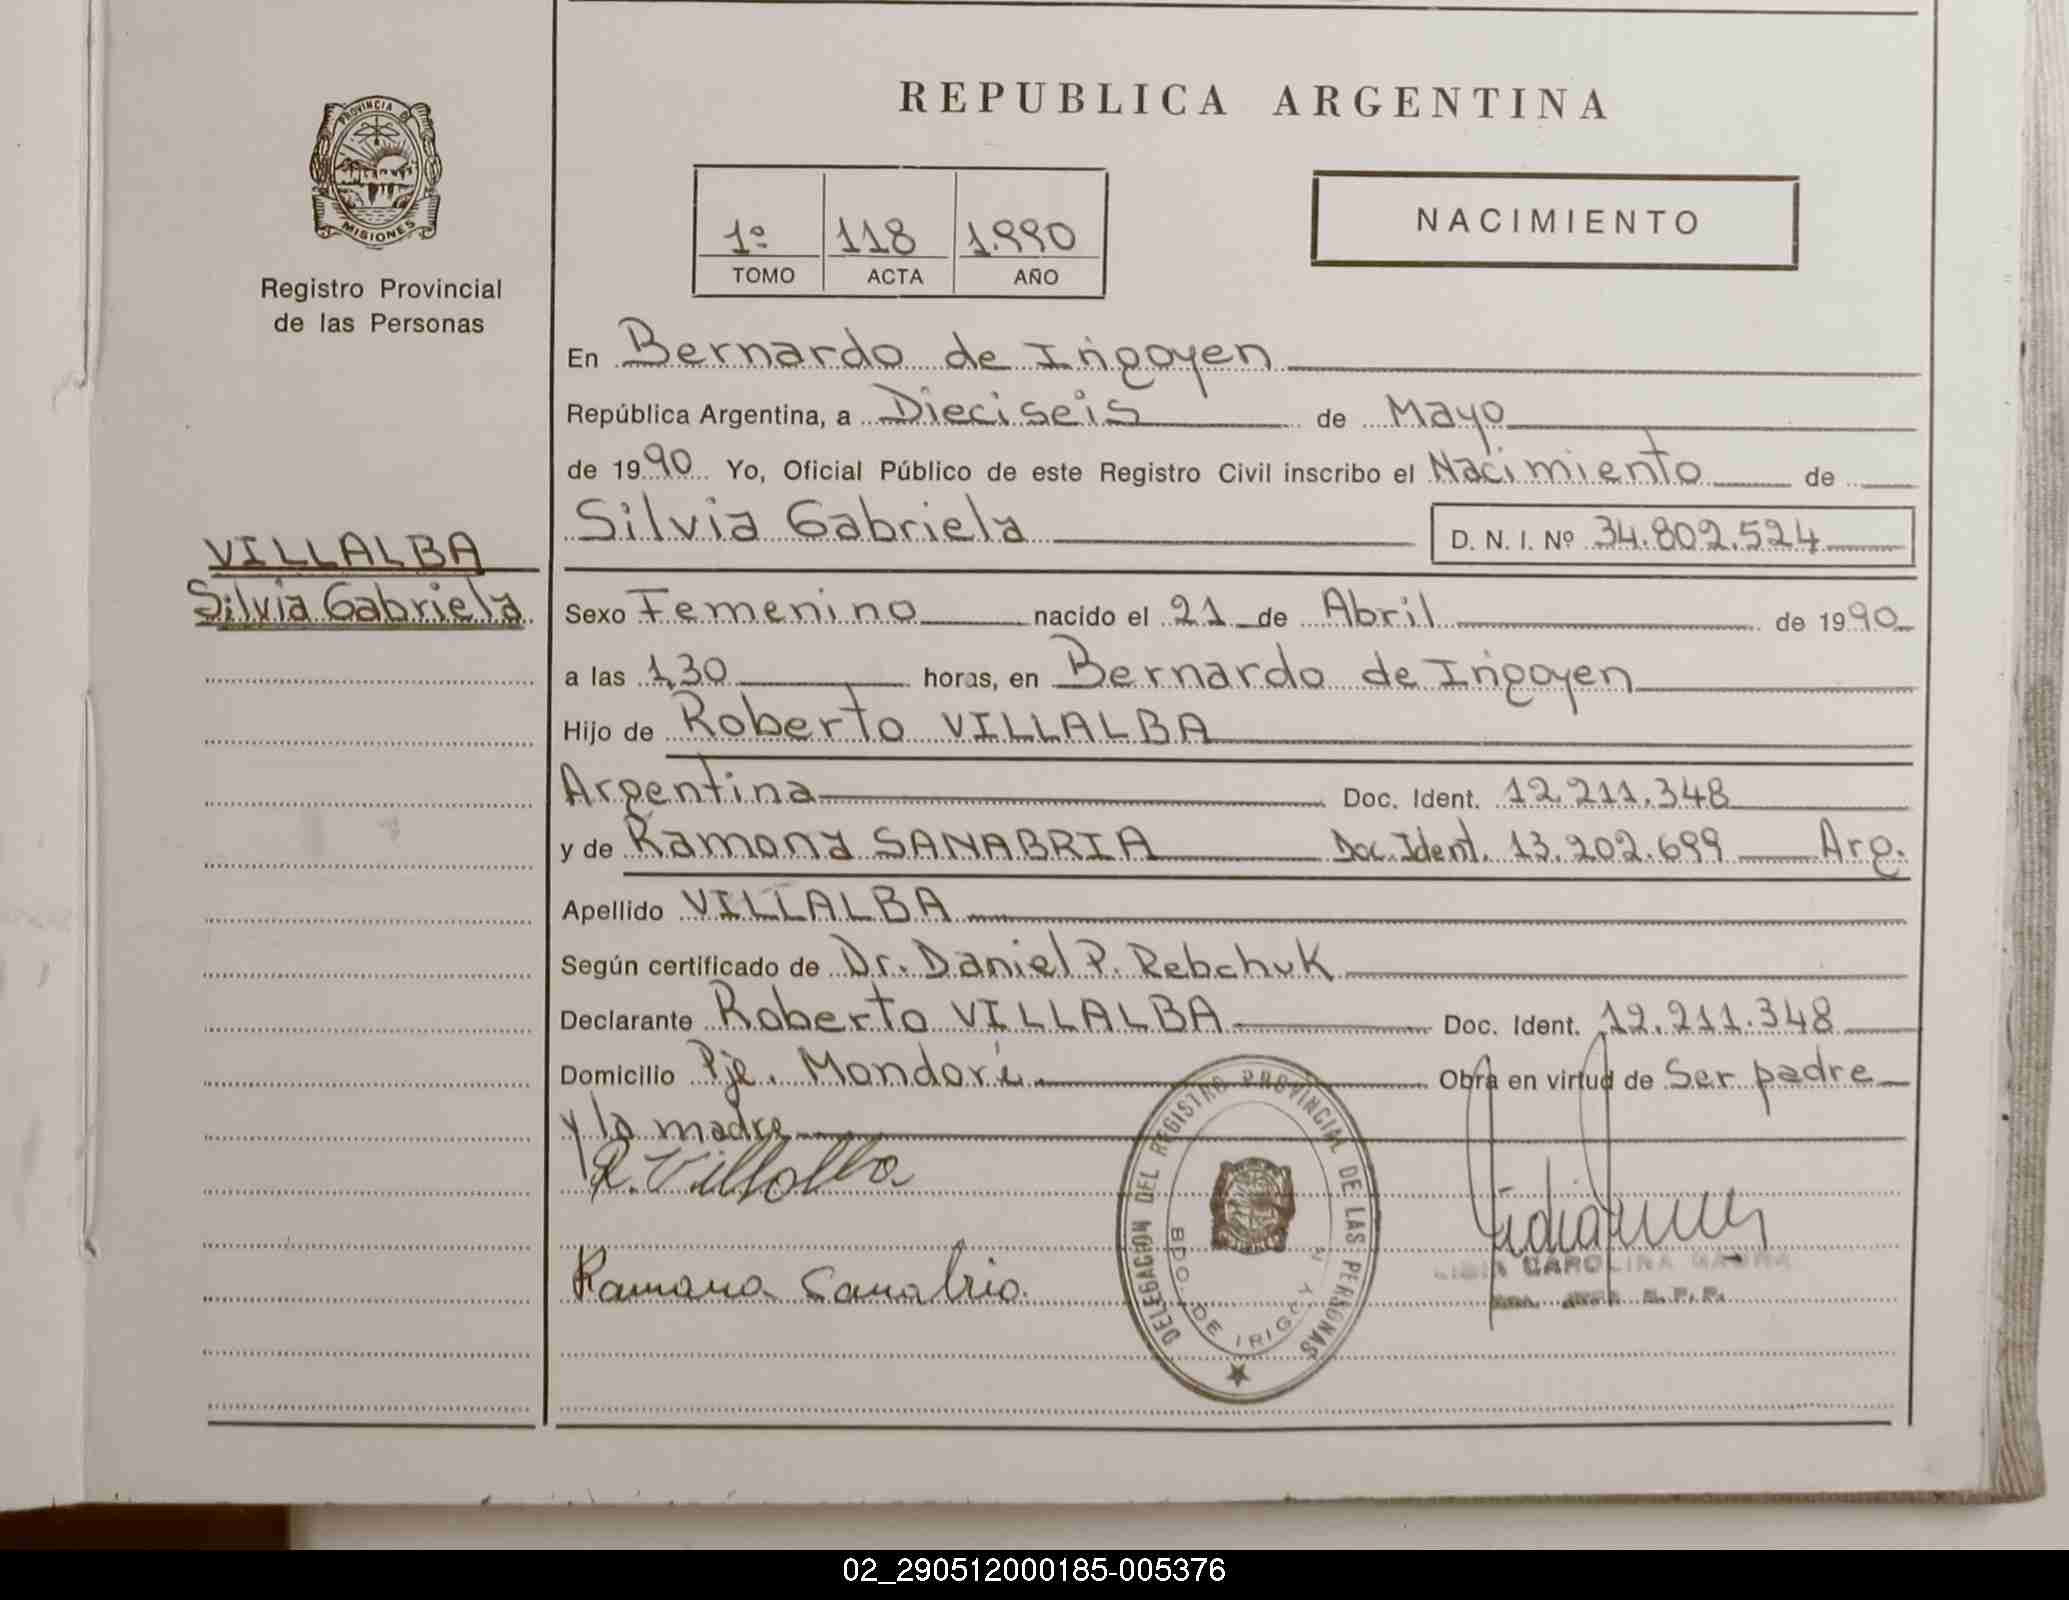 REPUBLICA ARGENTINA
PROVINCIA DE
MISIONES
Registro Provincial
de las Personas
1º 118 1.990
TOMO ACTA AÑO
NACIMIENTO
En Bernardo de Irigoyen
República Argentina, a Dieciseis de Mayo
de 1990 Yo, Oficial Público de este Registro Civil inscribo el Nacimiento de
Silvia Gabriela D. N. I. Nº 34.802.524
VILLALBA
Silvia Gabriela
Sexo Femenino nacido el 21 de Abril de 1990
a las 1,30 horas, en Bernardo de Irigoyen
Hijo de Roberto VILLALBA
Argentina Doc. Ident. 12.211.348
y de Ramona SANABRIA Doc. Ident. 13.202.699 Arg.
Apellido VILLALBA
Según certificado de Dr. Daniel P. Rebchuk
Declarante Roberto VILLALBA Doc. Ident. 12.211.348
Domicilio Pje. Mondorí Obra en virtud de Ser padre
y la madre
R. Villalba
Ramona Sanabria
DELEGACION DEL REGISTRO PROVINCIAL DE LAS PERSONAS
BDO. DE IRIGOYEN
CAROLINA
02_290512000185-005376